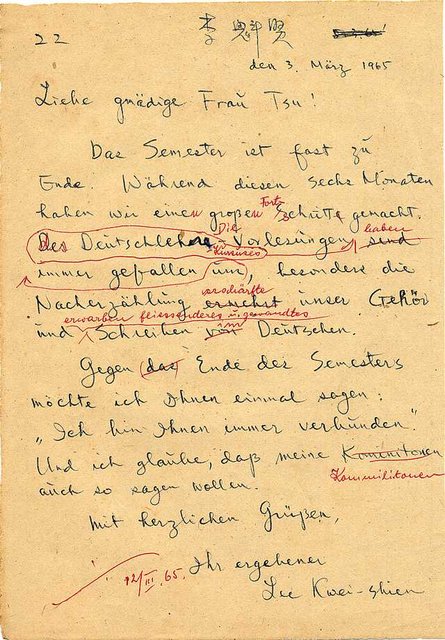 22 李魁賢
den 3. März 1965
Liebe gnädige Frau Tsu!
Das Semester ist fast zu
Ende. Während diesen Sechs Monaten
Fort
haben wir einen großen Schritt gemacht.
Die haben
Des Deutschlehrers Vorlesungen sind
Kursuses
immer gefallen uns, besonders die
verschärfte
Nacherzählung unser Gehör
erwarben fliessenderes u. gewandtes
und Schreiben von Deutschen.
im
Gegen das Ende des Semesters
möchte ich Ihnen einmal sagen:
„Ich bin Ihnen immer verbunden."
Und ich glaube, daß meine Kominitonen
Kommilitonen
auch so sagen wollen.
Mit herzlichen Grüßen,
Ihr ergebener
12/III. 65.
Lee Kwei-shien